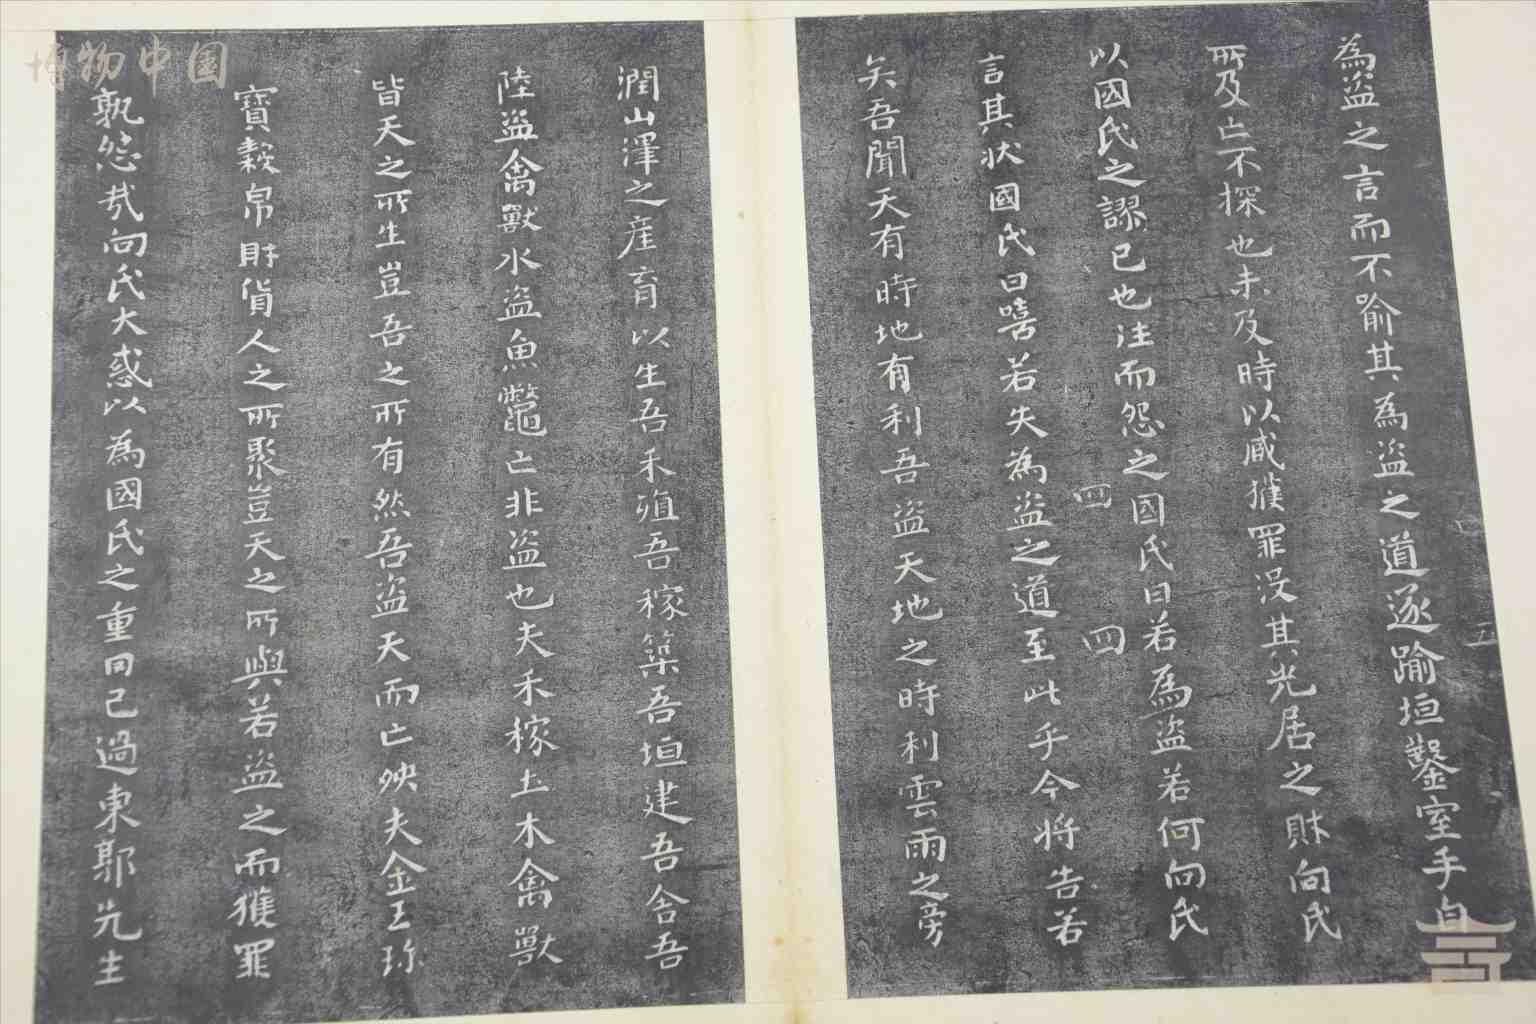 為盜之言而不喻其為盜之道遂踰垣鑿室手目
所及亡不探也未及時以臧獲罪沒其先居之財向氏
以國氏之謬已也往而怨之國氏曰若為盜若何向氏
言其狀國氏曰嘻若失為盜之道至此乎今將告若
矣吾聞天有時地有利吾盜天地之時利雲雨之旁
潤山澤之產育以生吾禾殖吾稼築吾垣建吾舍吾
陸盜禽獸水盜魚鼈亡非盜也夫禾稼土木禽獸
皆天之所生豈吾之所有然吾盜天而亡殃夫金玉珎
寶穀帛財貨人之所聚豈天之所與若盜之而獲罪
孰怨哉向氏大惑以為國氏之重罔己過東郭先生
四
四
五
博物中國